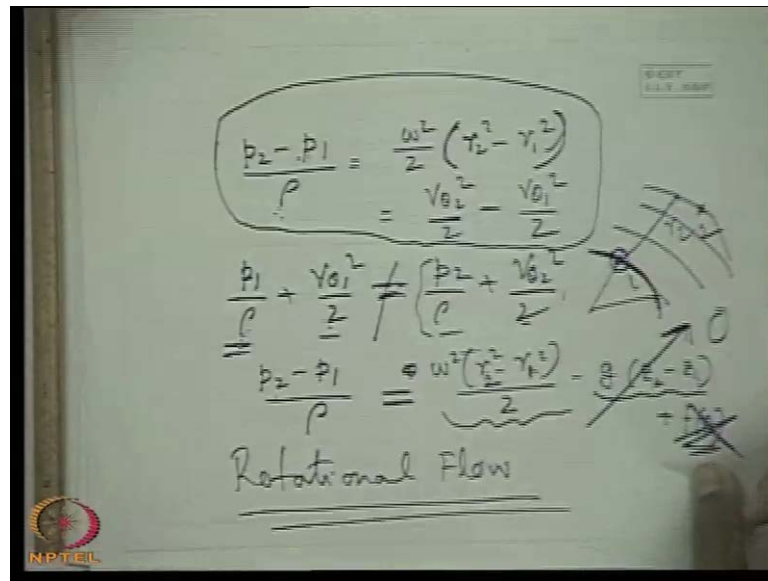 p₂ - p₁ / ρ = ω²/2 (r₂² - r₁²)
= Vθ₂²/2 - Vθ₁²/2
p₁/ρ + Vθ₁²/2 ≠ p₂/ρ + Vθ₂²/2
p₂ - p₁ / ρ = ω²(r₂² - r₁²)/2 - g(z₂ - z₁)
Rotational Flow
NPTEL